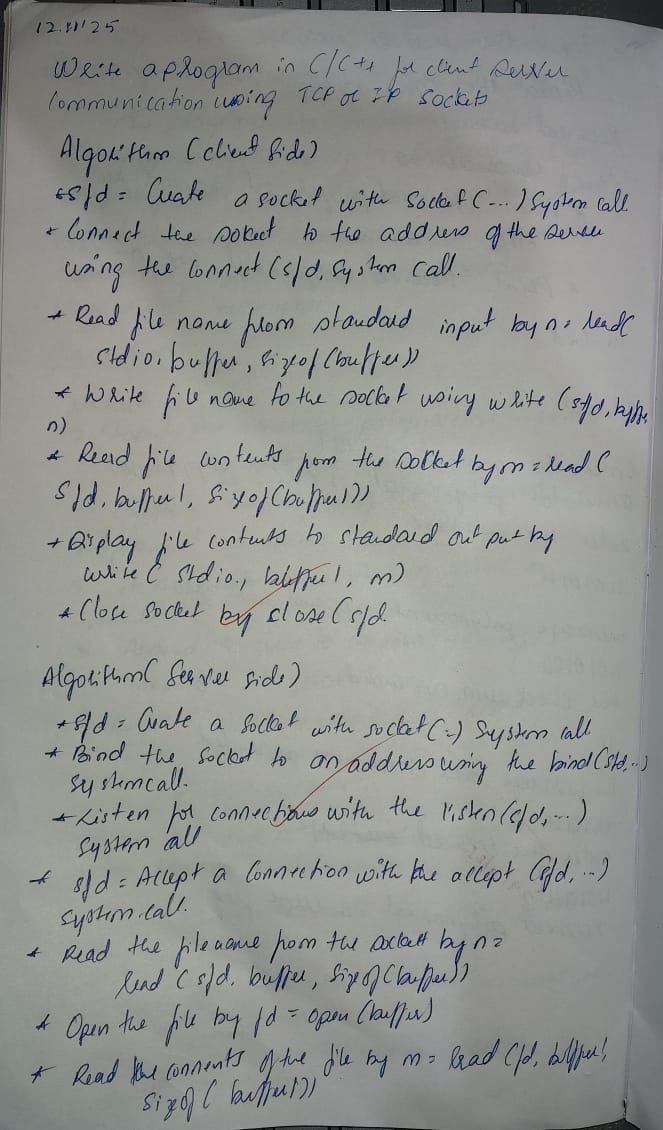 12.11.25
Write a program in C/C++ for client server
Communication using TCP or IP sockets
Algorithm (client side)
* s/d = Create a socket with Socket (...) System call
* Connect the socket to the address of the server
using the Connect (s/d, System call.
* Read file name from standard input by n = read(
stdio, buffer, sizeof (buffer))
* Write file name to the socket using write (s/d, buffer,
n)
* Read file contents from the socket by m = read (
S/d, buffer1, sizeof (buffer1))
* Display file contents to standard out put by
write ( stdio., buffer1, m)
* Close socket by close (s/d
Algorithm ( Server side)
* s/d = Create a socket with socket (-) System call
* Bind the socket to an address using the bind (std, ..)
System call.
* Listen for connections with the listen (s/d, ...)
System call
* s/d = Accept a Connection with the accept (s/d, ..)
System call.
* Read the filename from the socket by n =
read ( s/d, buffer, sizeof (buffer))
* Open the file by fd = open (buffer)
* Read the contents of the file by m = read (fd, buffer1,
sizeof ( buffer1))